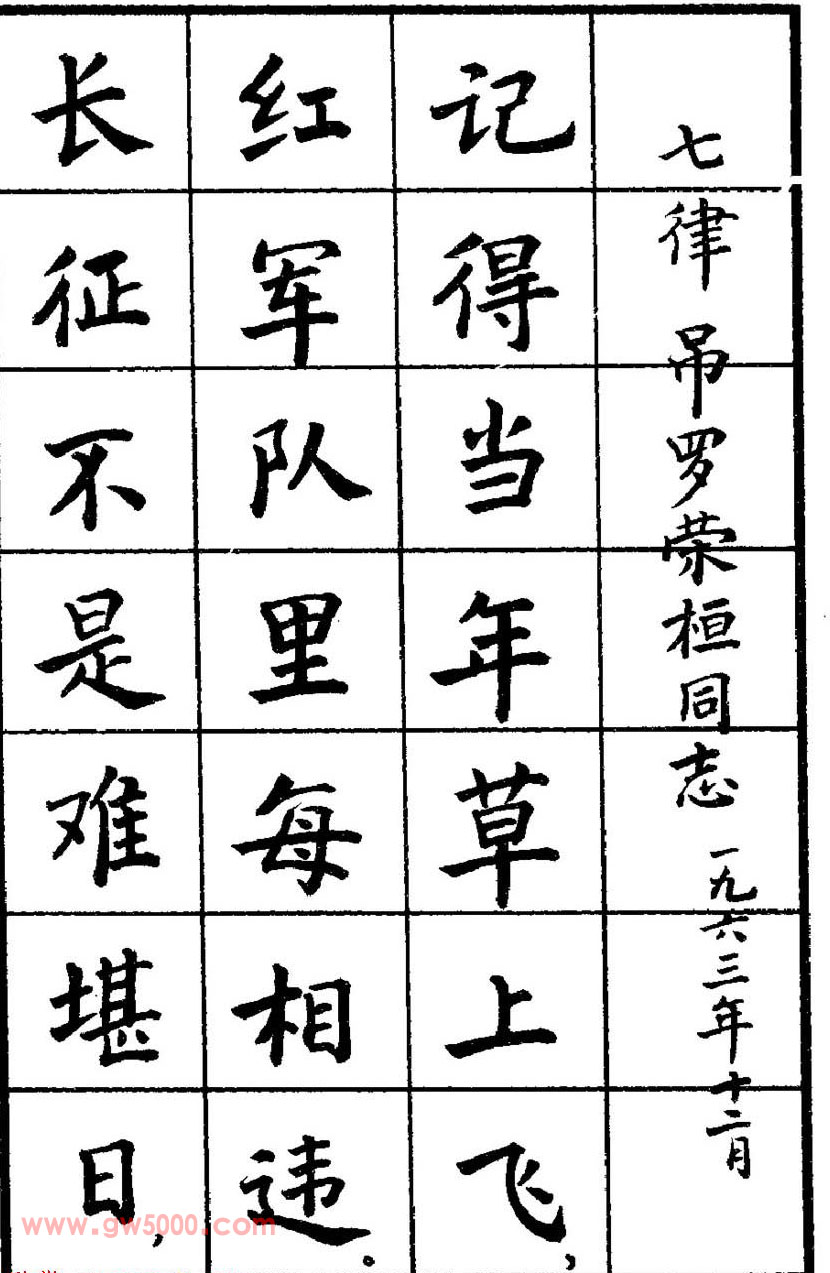 七律 吊罗荣桓同志 一九六三年十二月
记得当年草上飞，
红军队里每相违。
长征不是难堪日，
www.gw5000.com